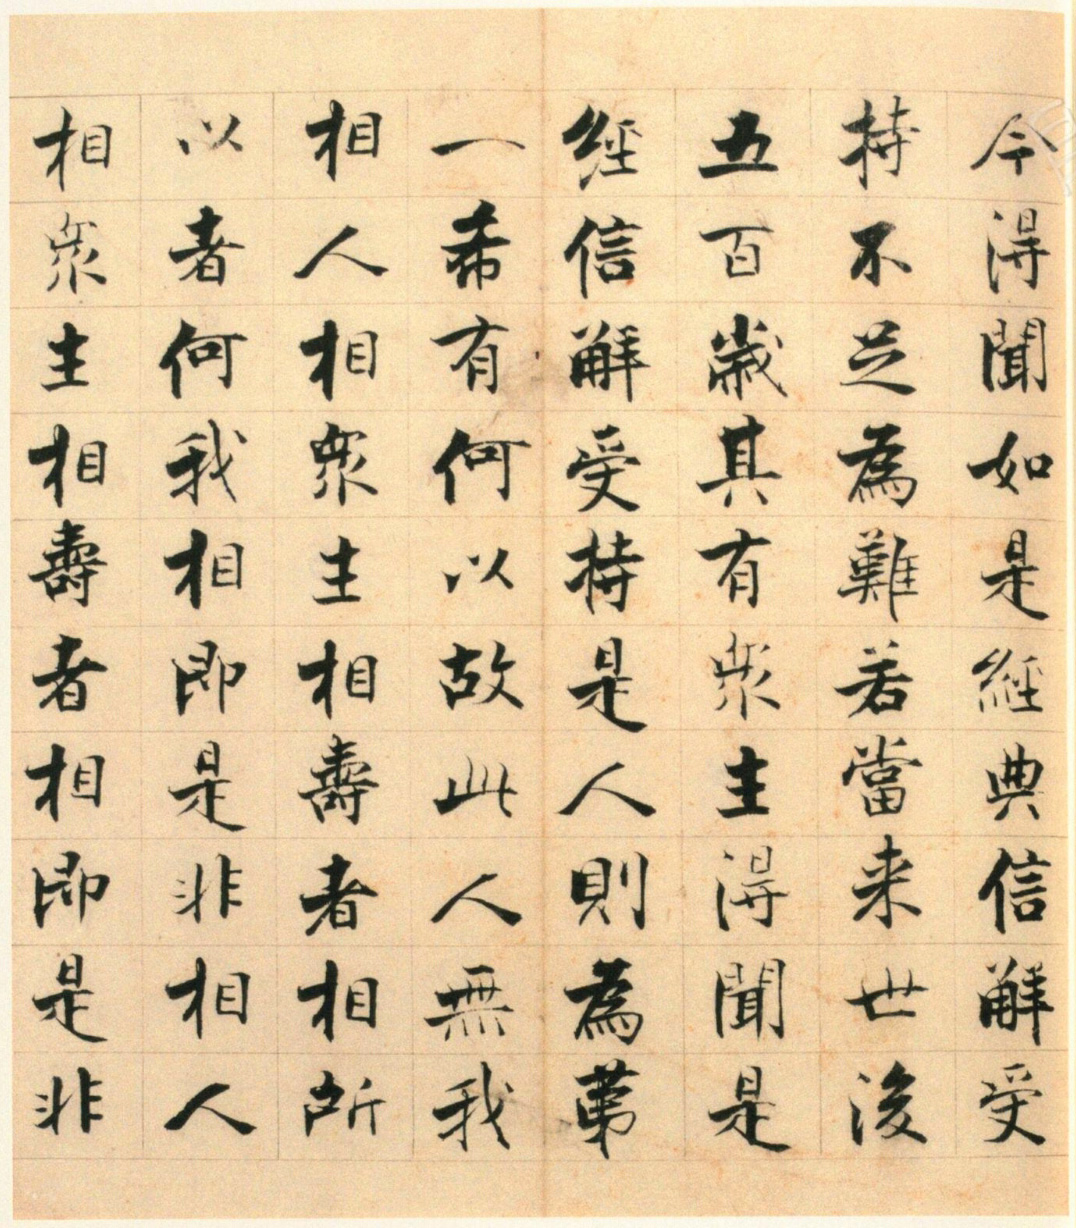 今得聞如是經典信解受
持不足為難若當来世後
五百歲其有眾生得聞是
經信解受持是人則為第
一希有何以故此人無我
相人相眾生相壽者相所
以者何我相即是非相人
相眾生相壽者相即是非